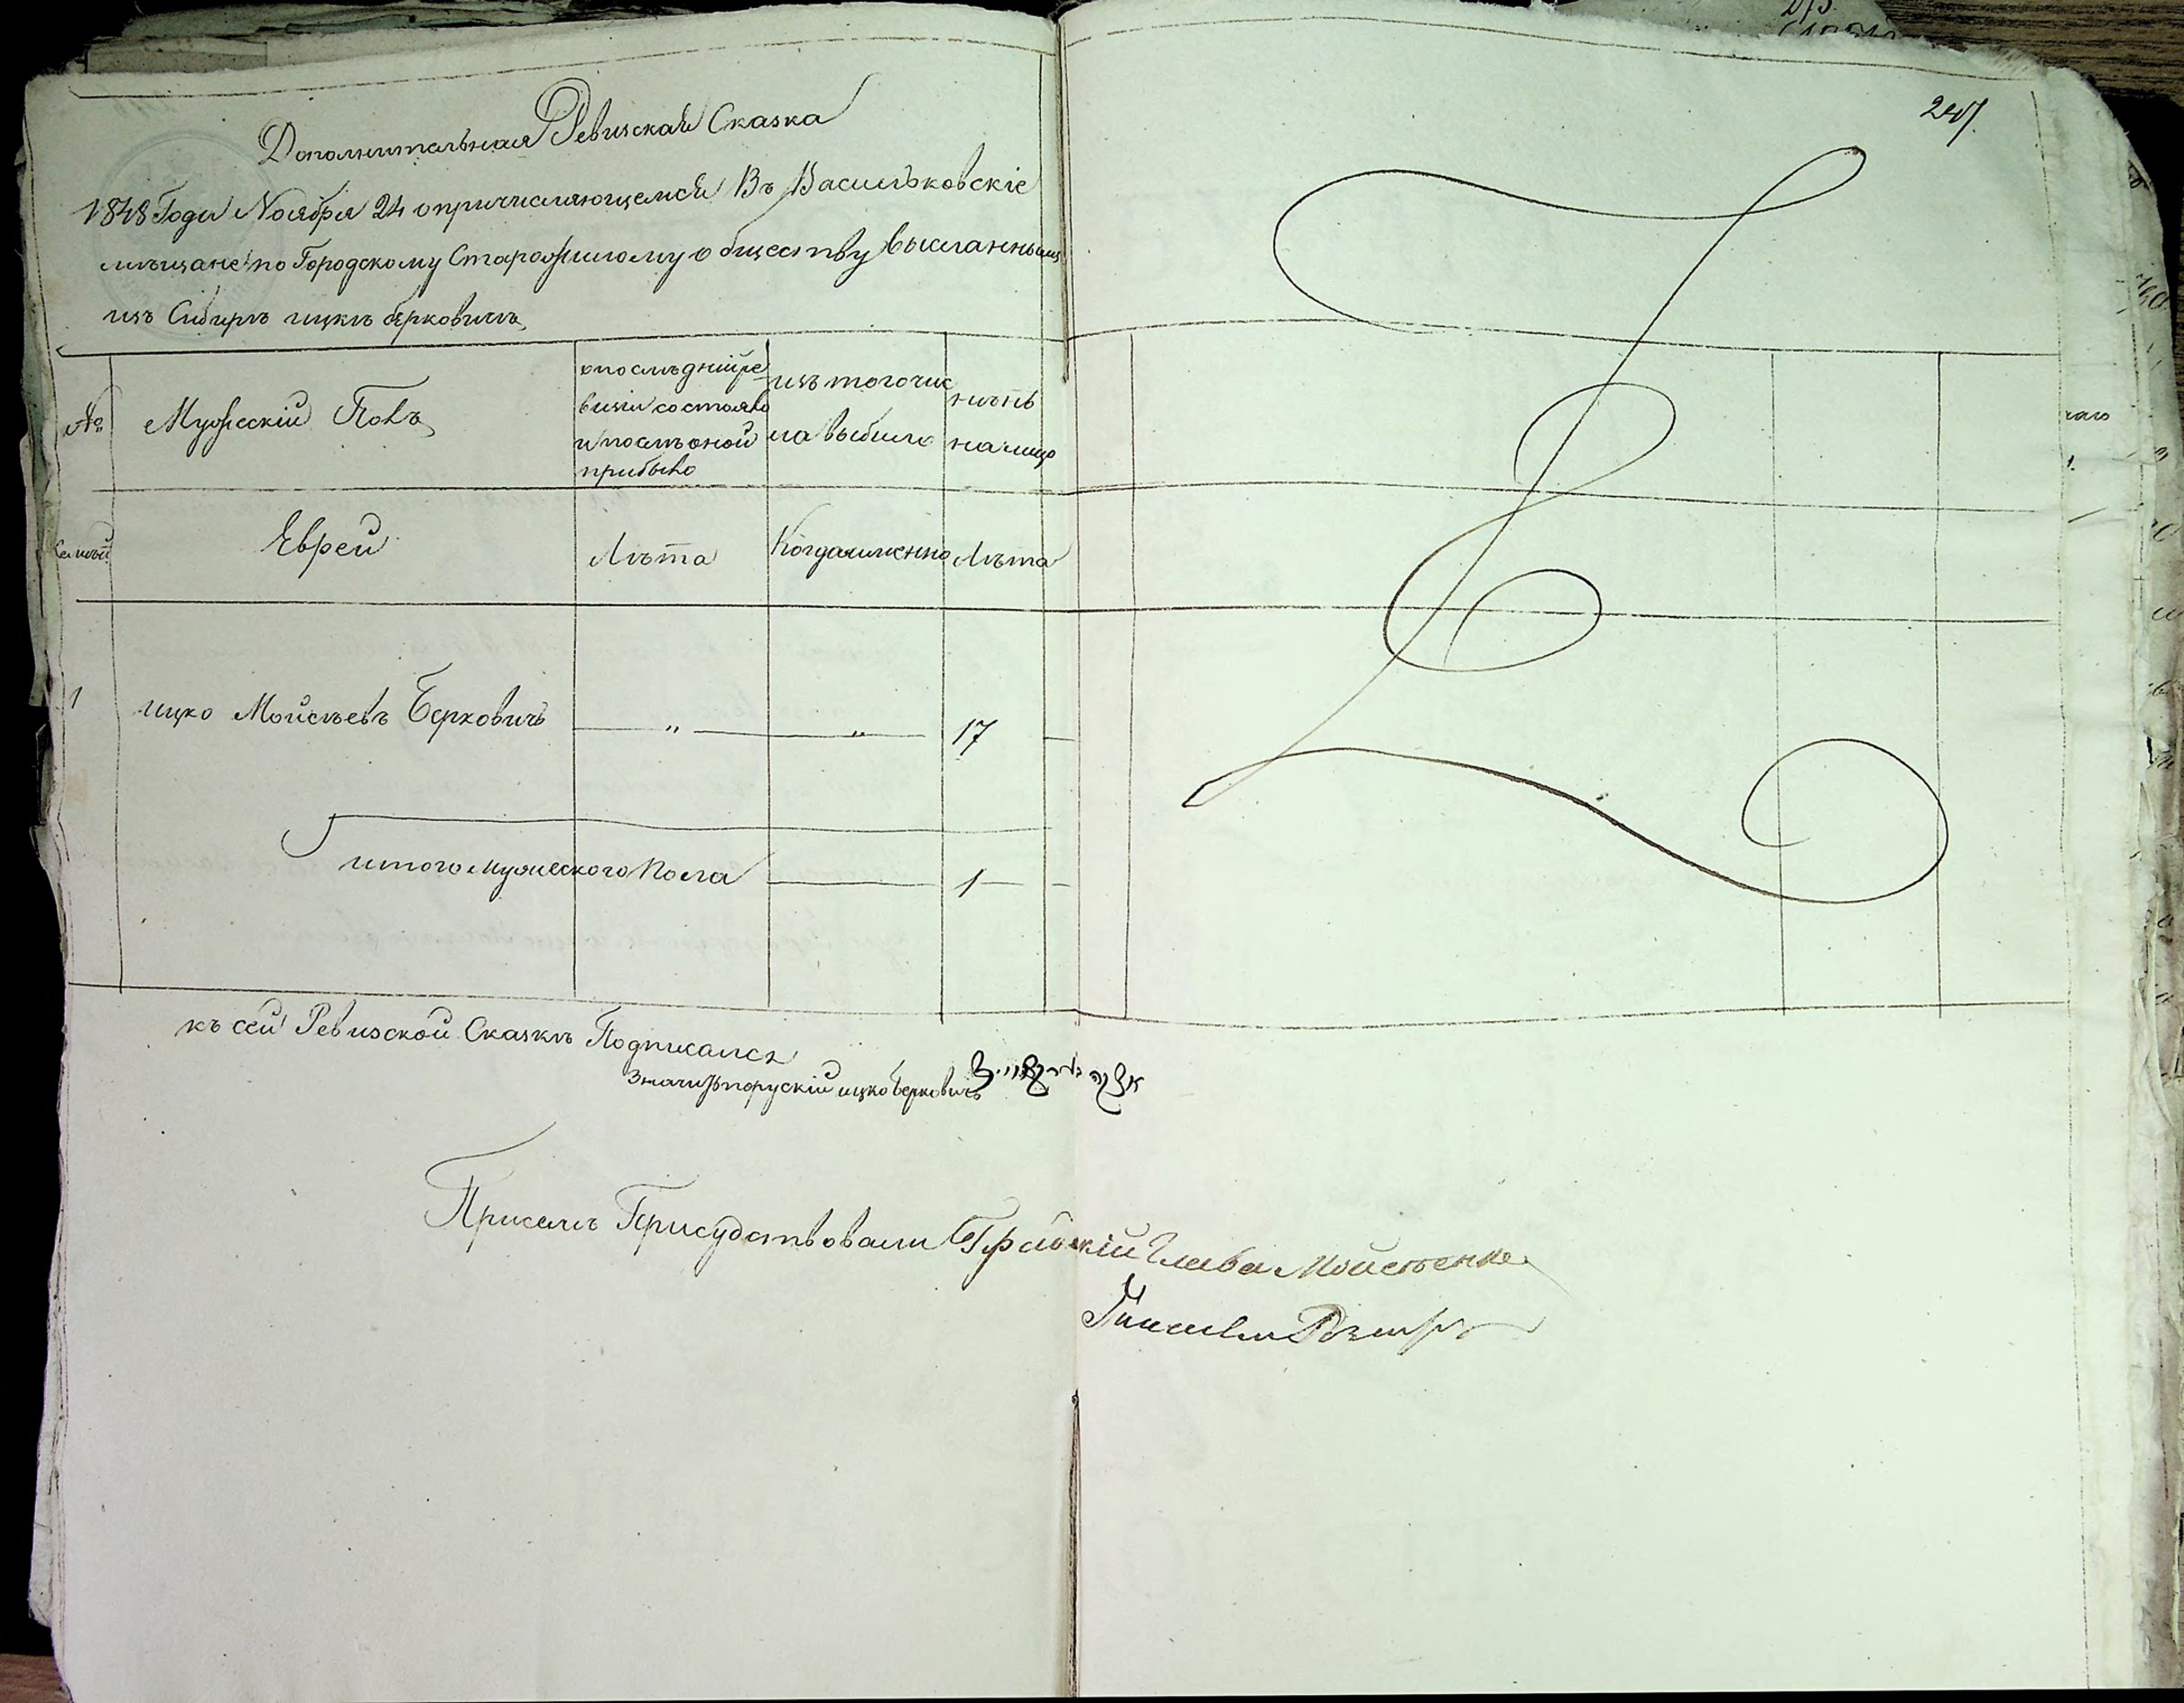 247
Дополнительная Ревизская Сказка
1848 Года Ноября 24 о причисляющемся Въ Васильковскіе
мѣщане по Городскому Старожилому обществу высланнымъ
изъ Сибирѣ ицкѣ берковичѣ
№ Мужескій Полъ
по послѣдній ре
визіи состояло
и послѣ оной
прибыло
изъ того чис
ла выбыло
нынѣ
на лицо
Семьи Еврей Лѣта Когда именно Лѣта
1 ицко Мойсѣевъ Берковичъ — " — " — 17 —
итого мужеского пола — 1 — —
къ сей Ревизской Сказкѣ Подписался
Значитъ по рускій ицко Берковичъ
При семъ Присудствовали Градскій Глава Мойсѣенко